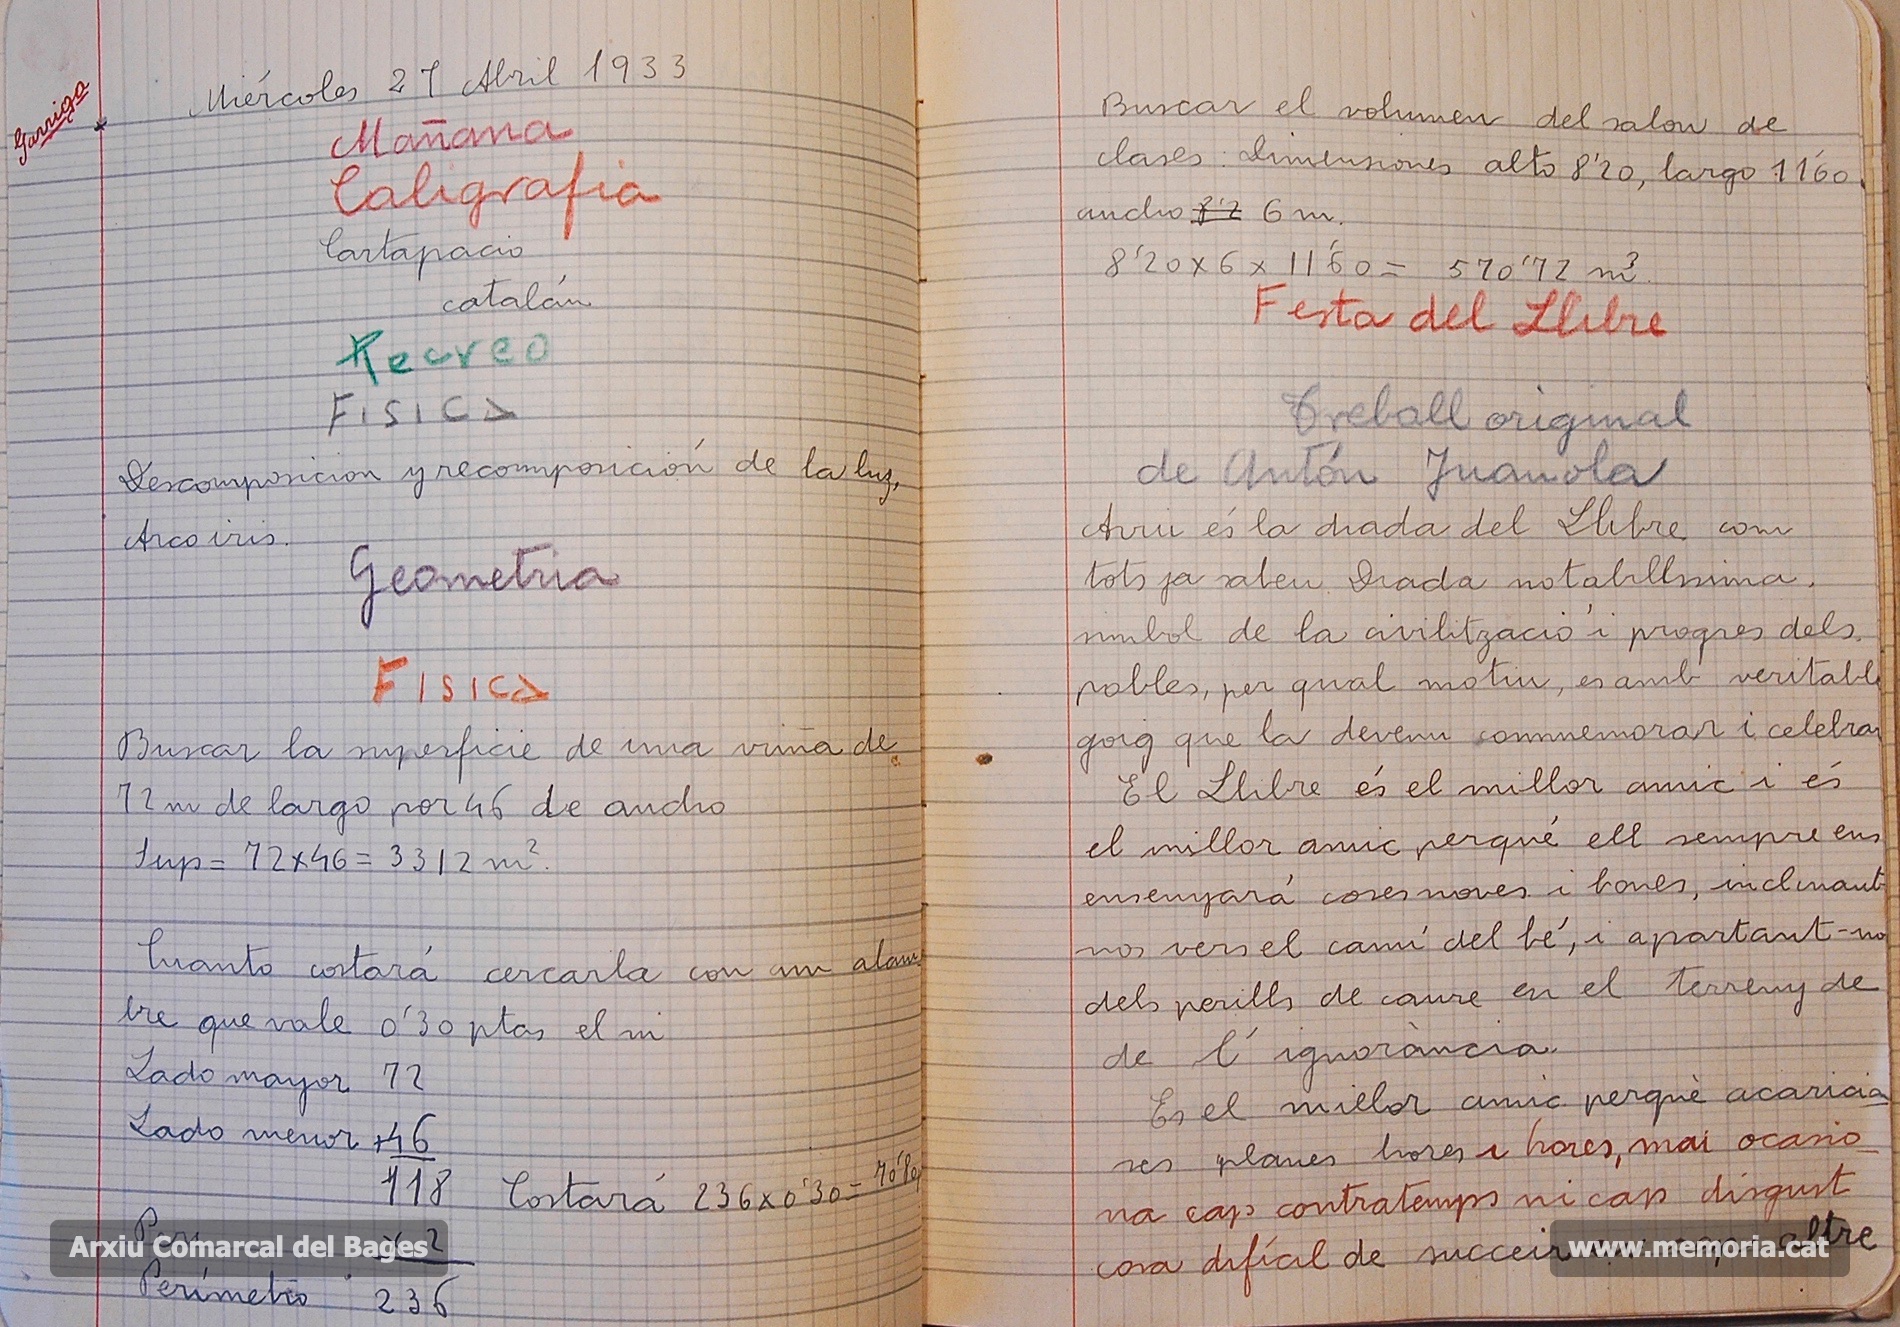 Garriga
Miércoles 27 Abril 1933
Mañana
Caligrafia
Cartapacio
catalán
Recreo
FISICA
Descomposicion y recomposición de la luz,
Arco iris.
Geometria
FISICA
Buscar la superficie de una viña de
72 m de largo por 46 de ancho
Sup = 72x46 = 3312 m².
Cuanto costará cercarla con un alam
bre que vale 0'30 ptas el m
Lado mayor 72
Lado menor +46
118 Costará 236x0'30=70'80
Peri x 2
Perímetro 236
Buscar el volumen del salon de
clases: Dimensiones alto 8'20, largo 11'60,
ancho 6 m.
8'20x6x11'60= 570'72 m³.
Festa del Llibre
Treball original
de Antón Juanola
Avui és la diada del Llibre com
tots ja sabeu. Diada notabilíssima,
simbol de la civilització i progres dels
pobles, per qual motiu, es amb veritable
goig que la devem commemorar i celebrar
El Llibre és el millor amic i és
el millor amic perqué ell sempre ens
ensenyará coses noves i bones, inclinant-
nos vers el camí del bé, i apartant-no
dels perills de caure en el terreny de
de l'ignorància.
Es el millor amic perquè acaricia
ses planes hores i hores, mai ocasio
na cap contratemps ni cap disgust
cosa difícil de succeir altre
Arxiu Comarcal del Bages
www.memoria.cat